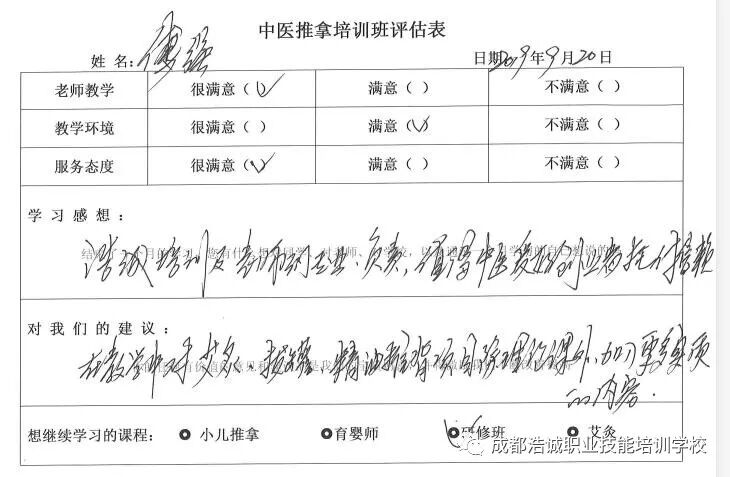 中医推拿培训班评估表
姓 名: 日期2019年9月20日
老师教学 很满意(√) 满意( ) 不满意( )
教学环境 很满意( ) 满意(√) 不满意( )
服务态度 很满意(√) 满意( ) 不满意( )
学习感想:
浩诚培训及老师的专业、负责,值得中医爱好创业者托付信赖
对我们的建议:
在教学中对艾灸、拔罐、精油推背项目除理论课外,加更多实质
的内容.
想继续学习的课程: 小儿推拿 育婴师 研修班 艾灸
成都浩诚职业技能培训学校